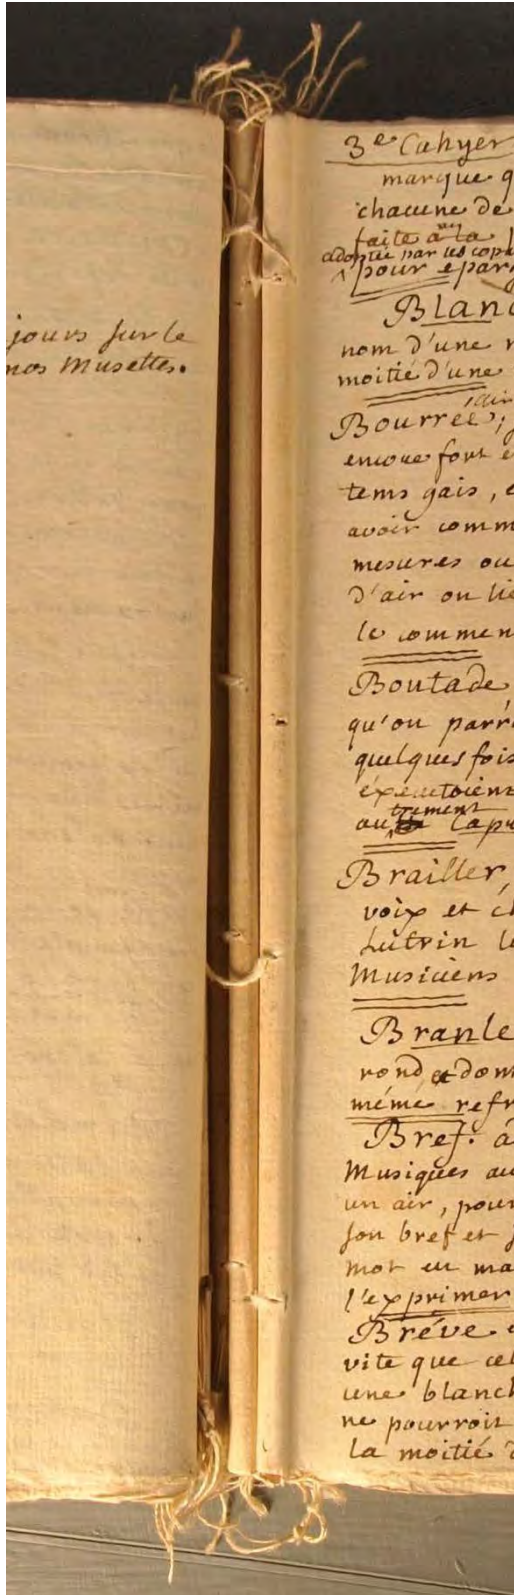 jours sur le
nos Musettes.
3e Cahyer
marque q
chacune de
faite à la
adoptée par les copi
pour épar
Blanc
nom d'une n
moitié d'une
air
Bourrée;
encore fort e
tems gais, e
avoir comm
mesures ou
d'air ou lie
le commen
Boutade
qu'on parr
quelques fois
éxecutoient
trement
au Capr
Brailler,
voix et c
Lutrin l
Musiciens
Branle
rond et dont
même refr
Bref. à
Musiques au
un air, pour
son bref et
mot en ma
l'exprimer
Bréve
vite que cel
une blanch
ne pourroit
la moitié d